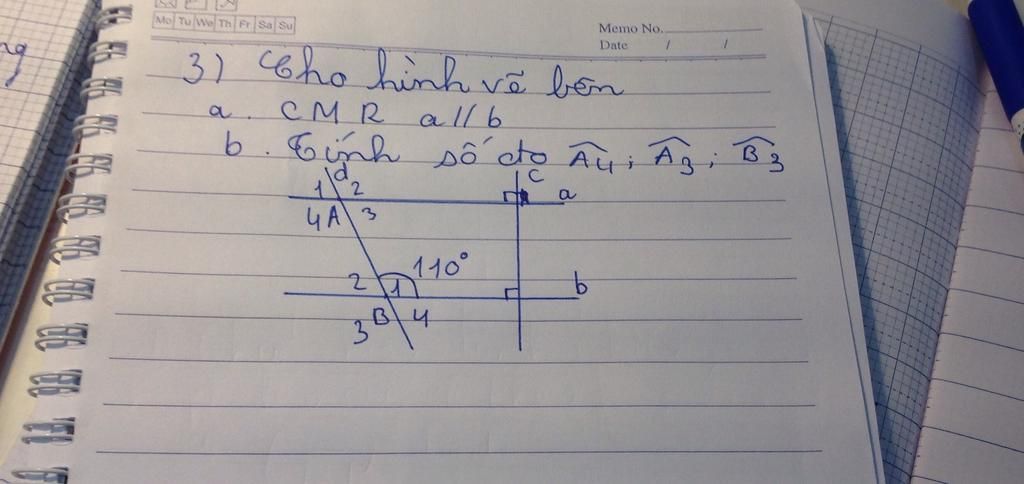 Mo Tu We Th Fr Sa Su
Memo No.
Date / /
3) Cho hình vẽ bên
a. CMR a//b
b. Tính số đo Â4; Â3; B̂3
d c
1 2 a
4 A 3
2 1 110° b
3 B 4